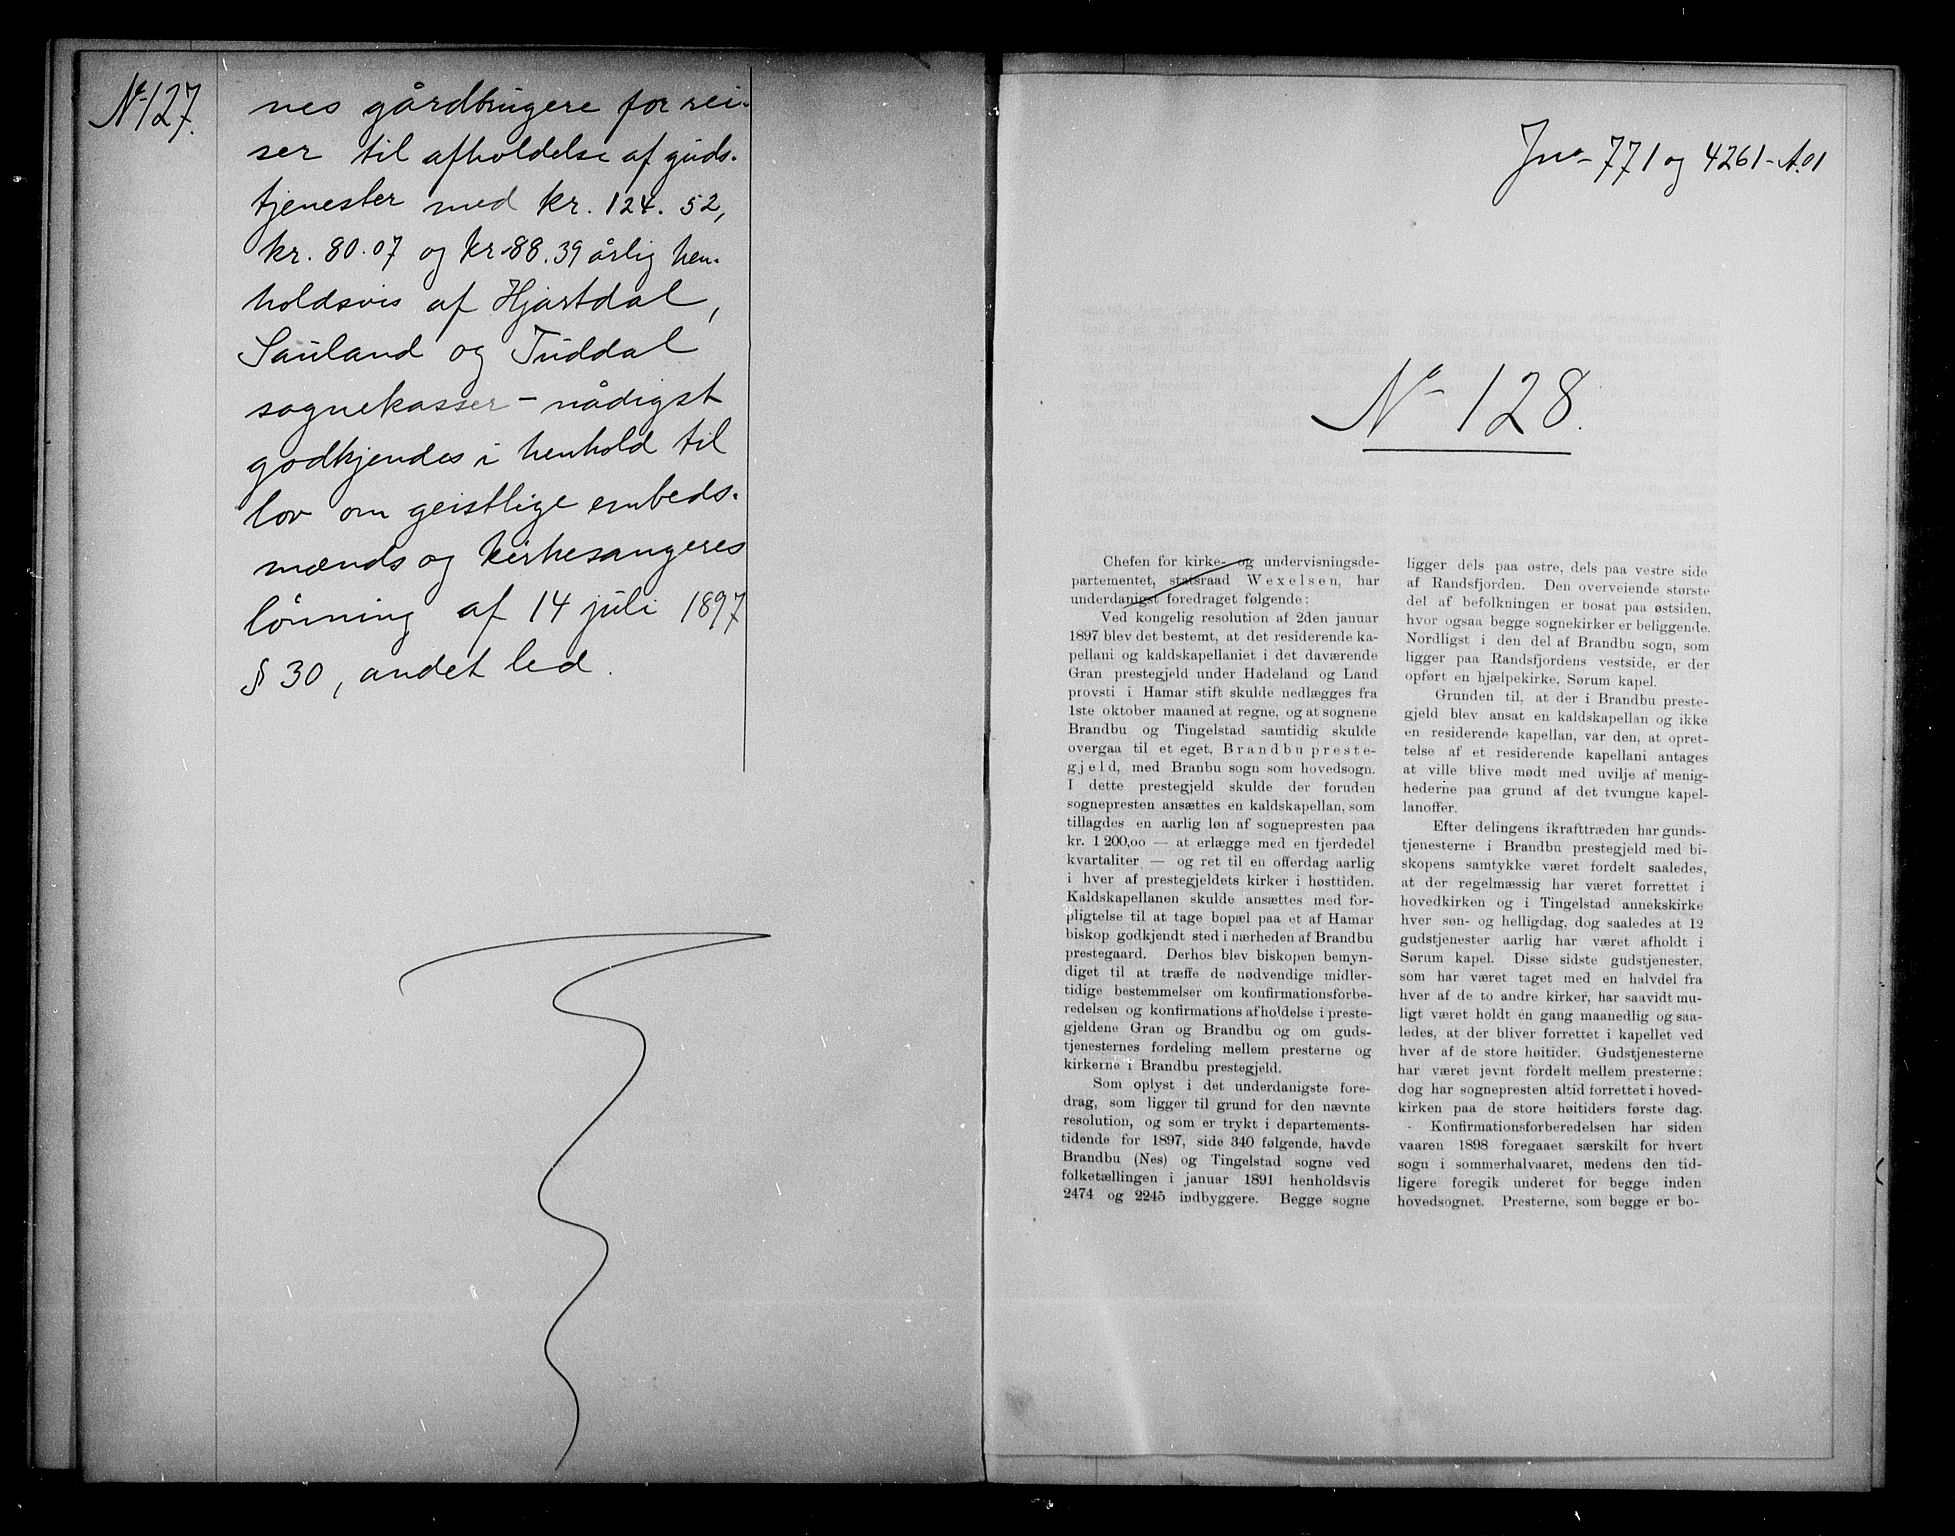 No 127.
nes gårdbrugere for rei-
ser til afholdelse af guds-
tjenester med kr. 124. 52,
kr. 80.07 og kr. 88.39 årlig hen-
holdsvis af Hjartdal,
Sauland og Tuddal
sognekasser – nådigst
godkjendes i henhold til
lov om geistlige embeds-
mænds og kirkesangeres
lønning af 14 juli 1897
§ 30, andet led.
Jno 771 og 4261 - A.01
No 128.
Chefen for kirke- og undervisningsde-
partementet, statsraad Wexelsen, har
underdanigst foredraget følgende:
Ved kongelig resolution af 2den januar
1897 blev det bestemt, at det residerende ka-
pellani og kaldskapellaniet i det daværende
Gran prestegjeld under Hadeland og Land
provsti i Hamar stift skulde nedlægges fra
1ste oktober maaned at regne, og at sognene
Brandbu og Tingelstad samtidig skulde
overgaa til et eget, Brandbu preste-
gjeld, med Branbu sogn som hovedsogn.
I dette prestegjeld skulde der foruden
sognepresten ansættes en kaldskapellan, som
tillagdes en aarlig løn af sognepresten paa
kr. 1 200,00 — at erlægge med en fjerdedel
kvartaliter — og ret til en offerdag aarlig
i hver af prestegjeldets kirker i høsttiden.
Kaldskapellanen skulde ansættes med for-
pligtelse til at tage bopæl paa et af Hamar
biskop godkjendt sted i nærheden af Brandbu
prestegaard. Derhos blev biskopen bemyn-
diget til at træffe de nødvendige midler-
tidige bestemmelser om konfirmationsforbe-
redelsen og konfirmations afholdelse i preste-
gjeldene Gran og Brandbu og om guds-
tjenesternes fordeling mellem presterne og
kirkerne i Brandbu prestegjeld.
Som oplyst i det underdanigste fore-
drag, som ligger til grund for den nævnte
resolution, og som er trykt i departements-
tidende for 1897, side 340 følgende, havde
Brandbu (Nes) og Tingelstad sogne ved
folketællingen i januar 1891 henholdsvis
2474 og 2245 indbyggere. Begge sogne
ligger dels paa østre, dels paa vestre side
af Randsfjorden. Den overveiende største
del af befolkningen er bosat paa østsiden,
hvor ogsaa begge sognekirker er beliggende.
Nordligst i den del af Brandbu sogn, som
ligger paa Randsfjordens vestside, er der
opført en hjælpekirke, Sørum kapel.
Grunden til, at der i Brandbu preste-
gjeld blev ansat en kaldskapellan og ikke
en residerende kapellan, var den, at opret-
telse af et residerende kapellani antages
at ville blive mødt med uvilje af menig-
hederne paa grund af det tvungne kapel-
lanoffer.
Efter delingens ikrafttræden har gunds-
tjenesterne i Brandbu prestegjeld med bi-
skopens samtykke været fordelt saaledes,
at der regelmæssig har været forrettet i
hovedkirken og i Tingelstad annekskirke
hver søn- og helligdag, dog saaledes at 12
gudstjenester aarlig har været afholdt i
Sørum kapel. Disse sidste gudstjenester,
som har været taget med en halvdel fra
hver af de to andre kirker, har saavidt mu-
ligt været holdt én gang maanedlig og saa-
ledes, at der bliver forrettet i kapellet ved
hver af de store høitider. Gudstjenesterne
har været jevnt fordelt mellem presterne;
dog har sognepresten altid forrettet i hoved-
kirken paa de store høitiders første dag.
Konfirmationsforberedelsen har siden
vaaren 1898 foregaaet særskilt for hvert
sogn i sommerhalvaaret, medens den tid-
ligere foregik underet for begge inden
hovedsognet. Presterne, som begge er bo-